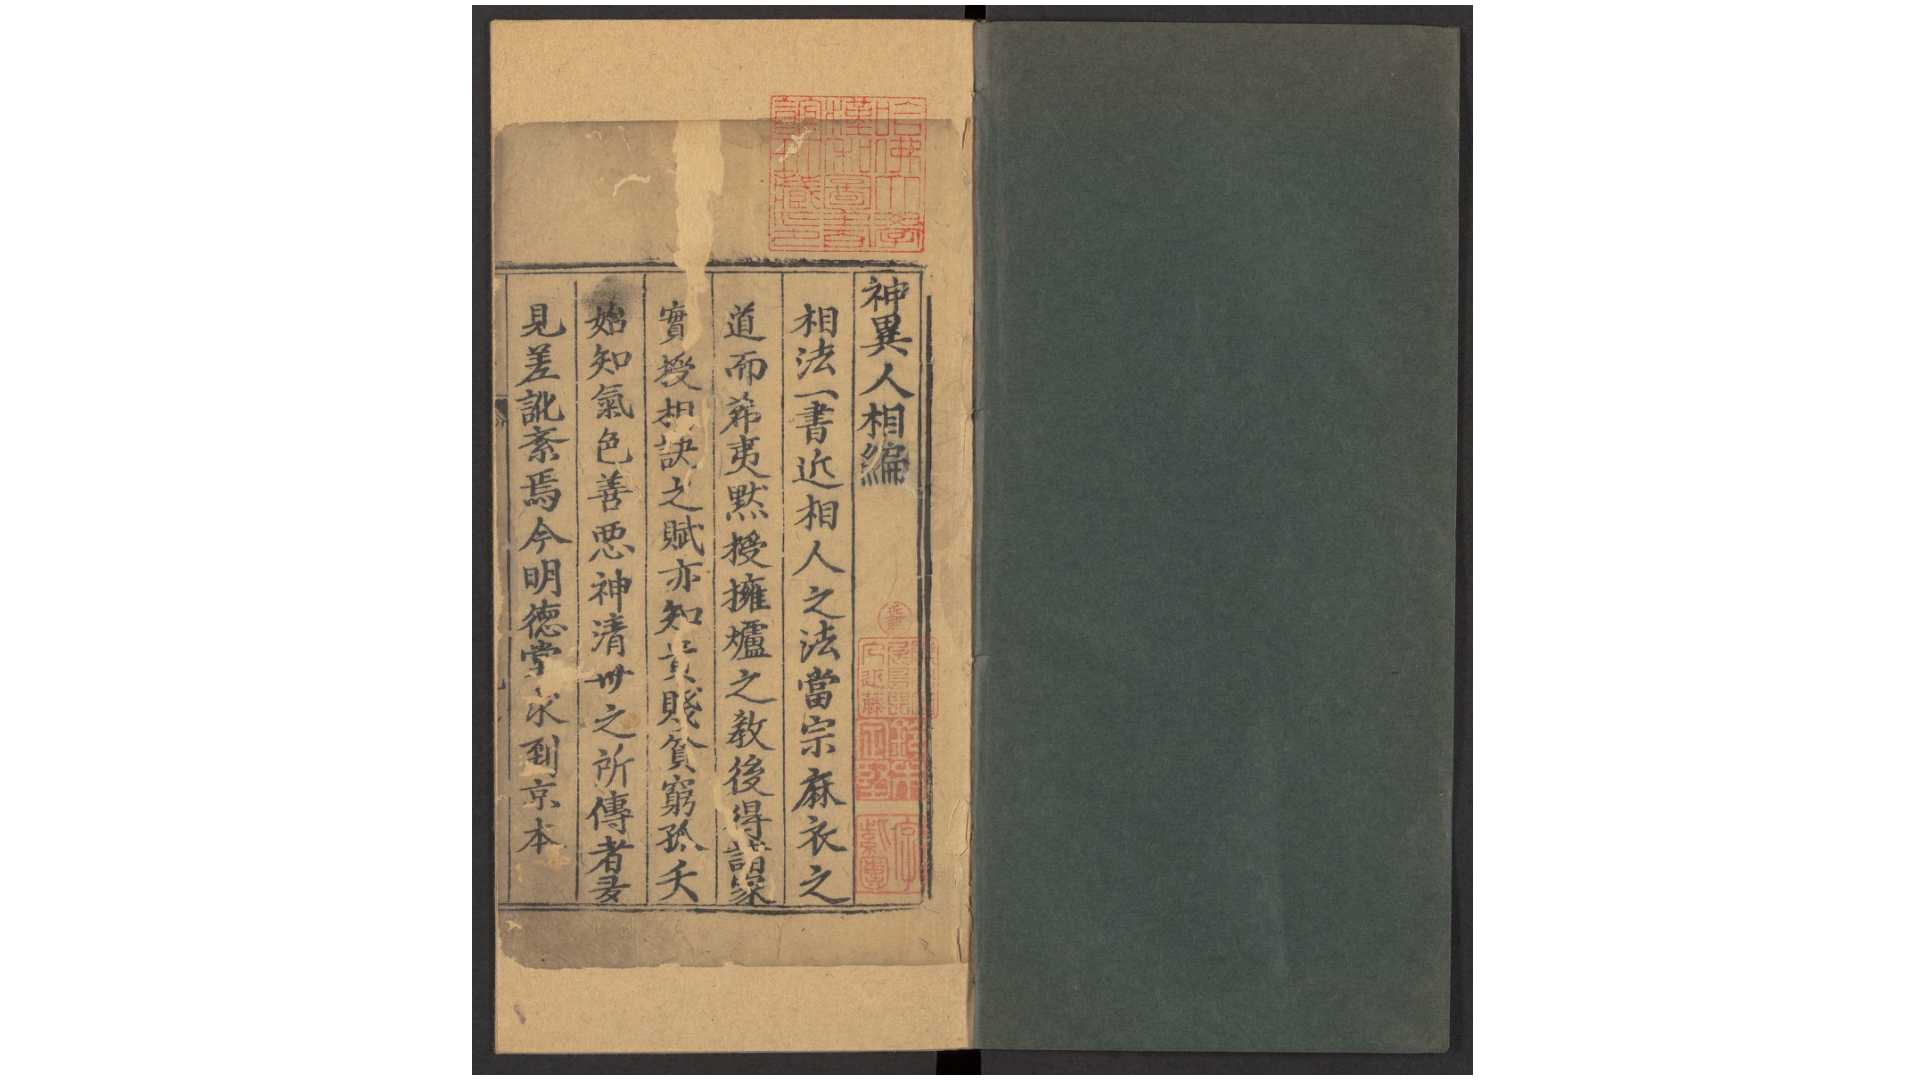 神異人相編
相法一書近相人之法當宗麻衣之
道而希夷默授擁爐之教後得謂
實授相訣之賦亦知貴賤貧窮孤夭
始知氣色善惡神清世之所傳者多
見差訛紊焉今明德堂求到京本
哈佛大學漢和圖書館珍藏印